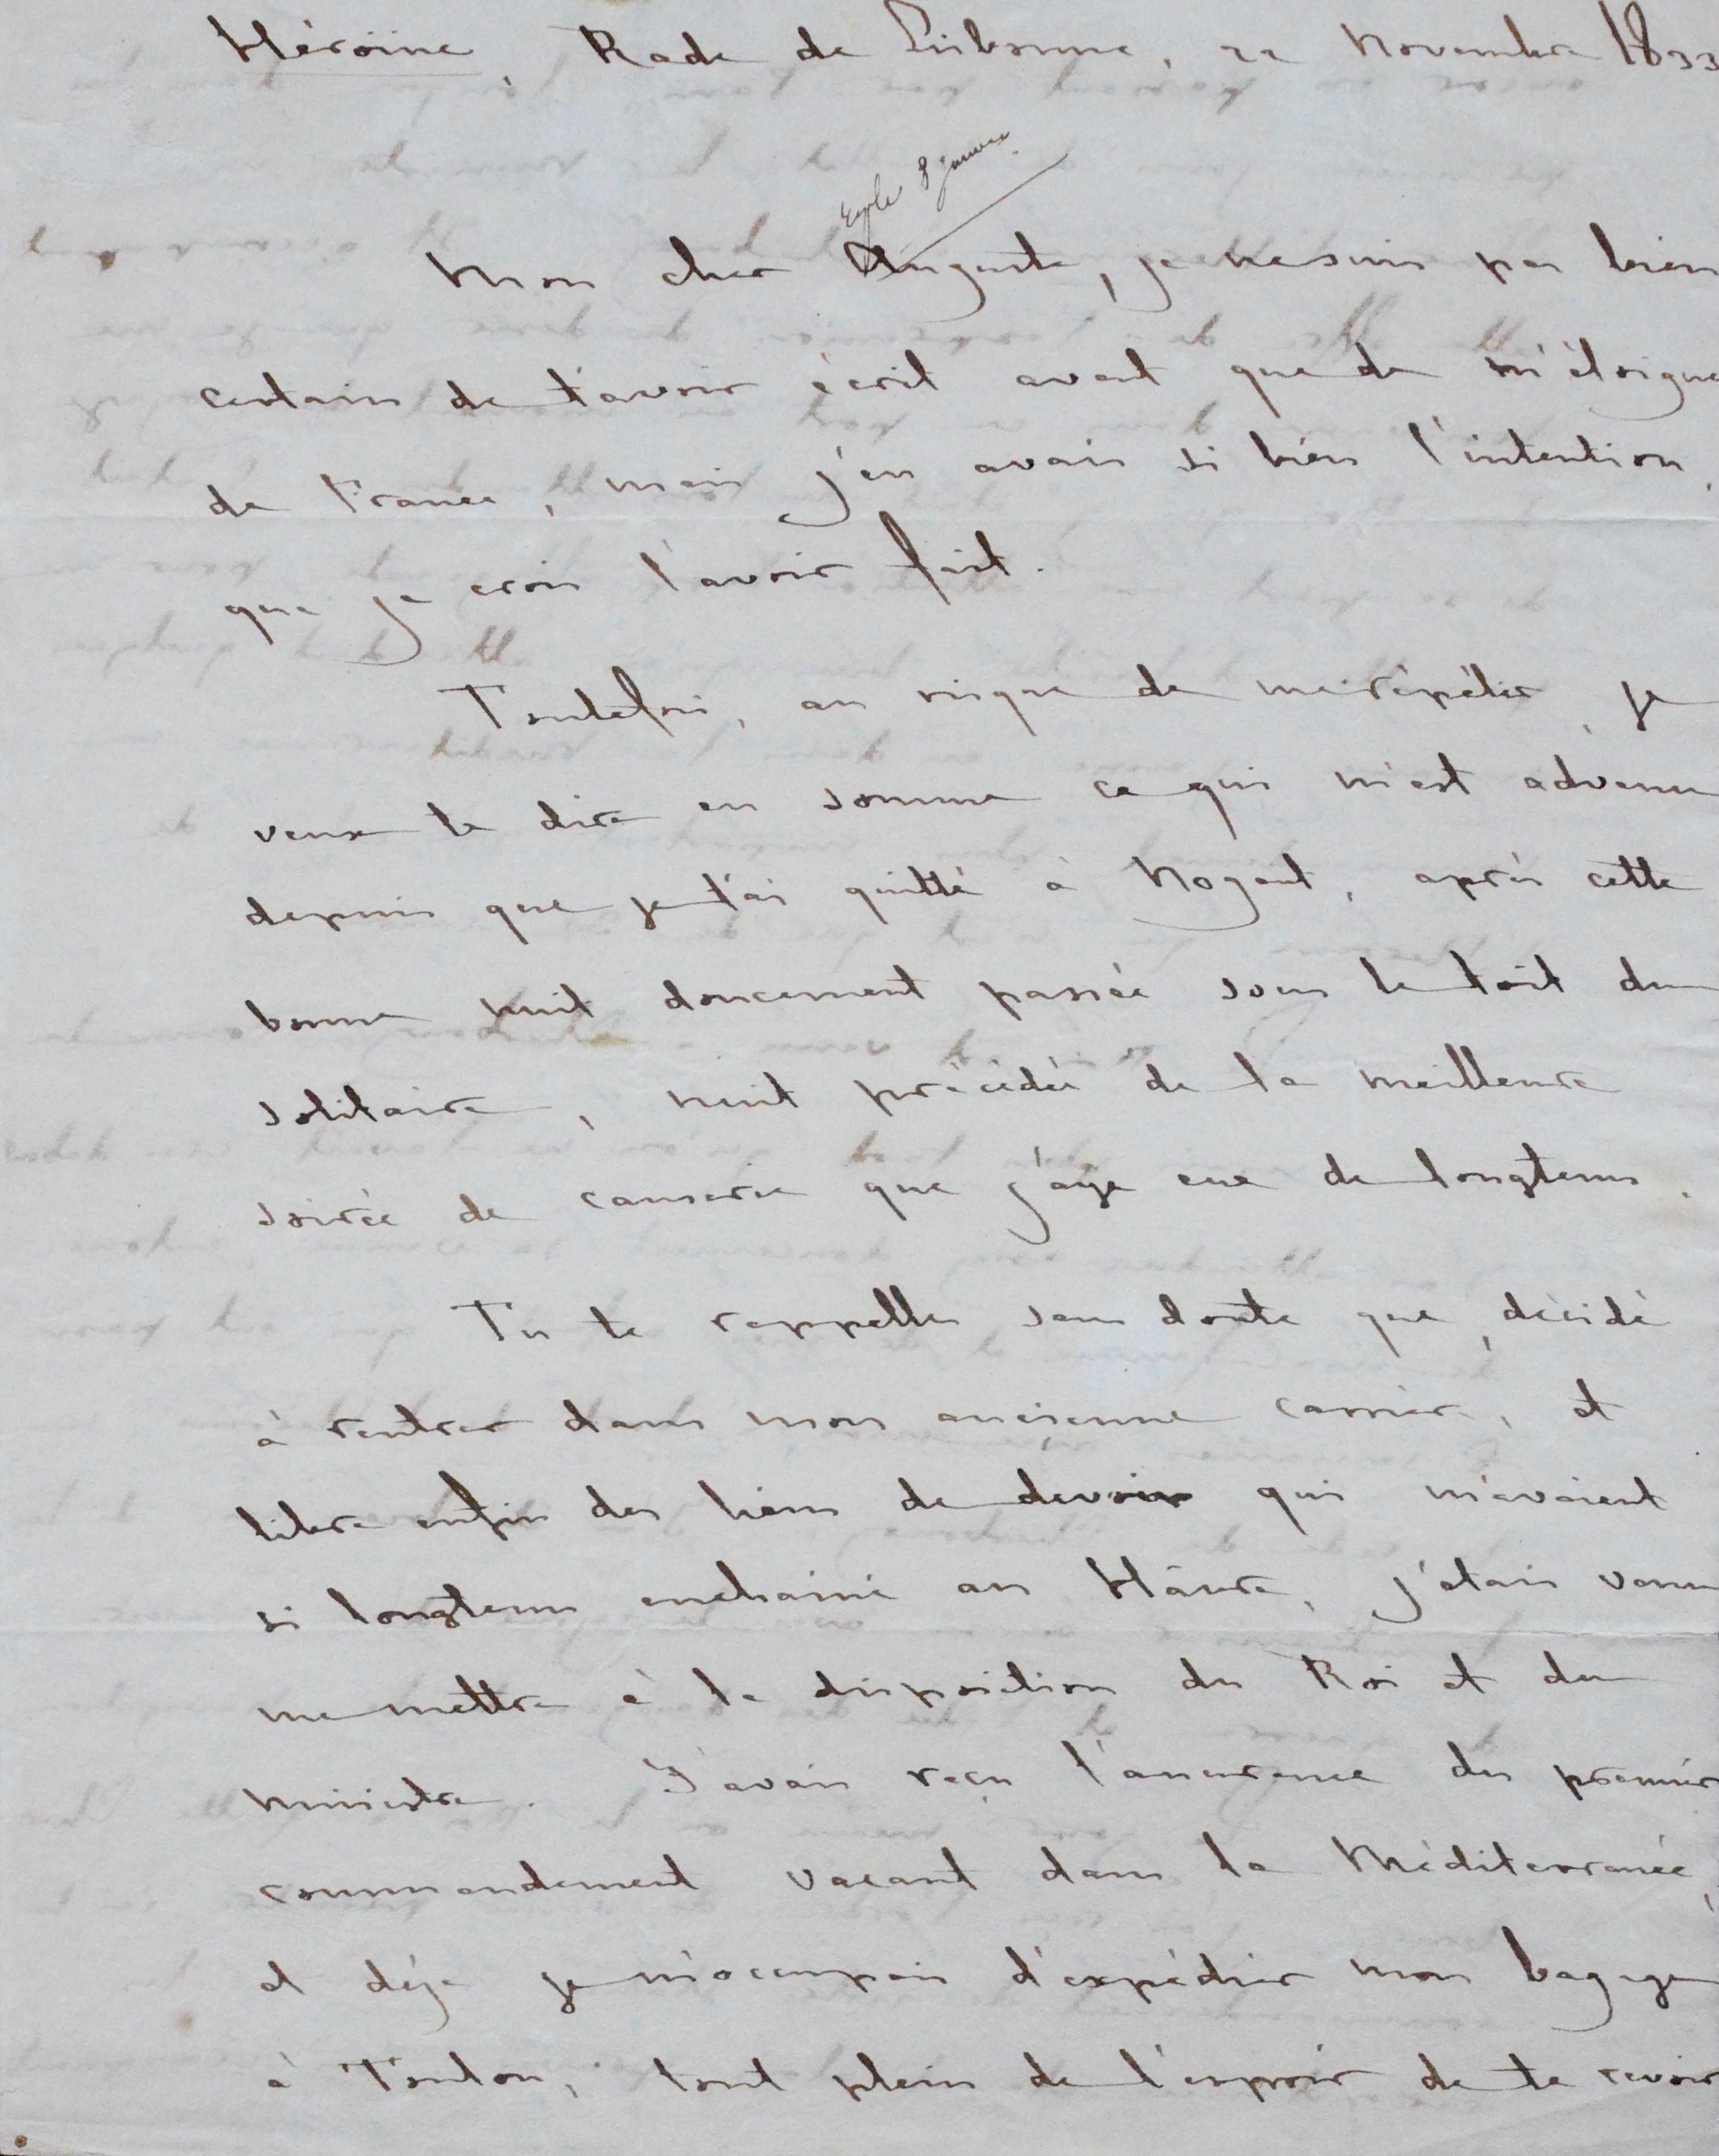 Héroïne, Rade de Lisbonne, 22 Novembre 1833
8 janvier
Mon cher Auguste, je ne suis pas bien
certain de t'avoir écrit avant que de m'éloigner
de France, mais j'en avais si bien l'intention,
que je crois l'avoir fait.
Toutefois, au risque de me répéter, je
veux te dire en somme ce qui m'est advenu
depuis que je t'ai quitté à Nogent, après cette
bonne nuit doucement passée sous le toit du
solitaire, nuit précédée de la meilleure
soirée de causerie que j'aye eue de longtems.
Tu te rappelles sans doute que, décidé
à rentrer dans mon ancienne carrière, et
libre enfin des liens de devoir qui m'avaient
si longtems enchainé au Hâvre, j'étais venu
me mettre à la disposition du Roi et du
ministre. J'avais reçu l'assurance du premier
commandement vacant dans la Méditerranée,
et déjà je m'occupais d'expédier mon bagage
à Toulon, tout plein de l'espoir de te revoir